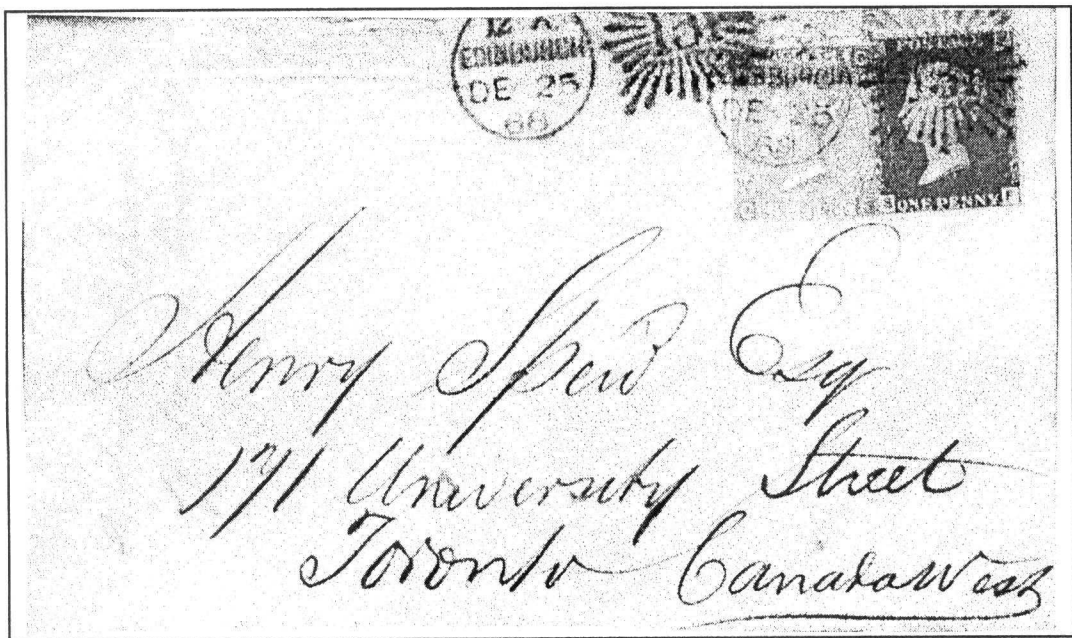 EDINBURGH
DE 25
131
DE 25
ONE PENNY
Henry Esq
171 University Street
Toronto Canada West